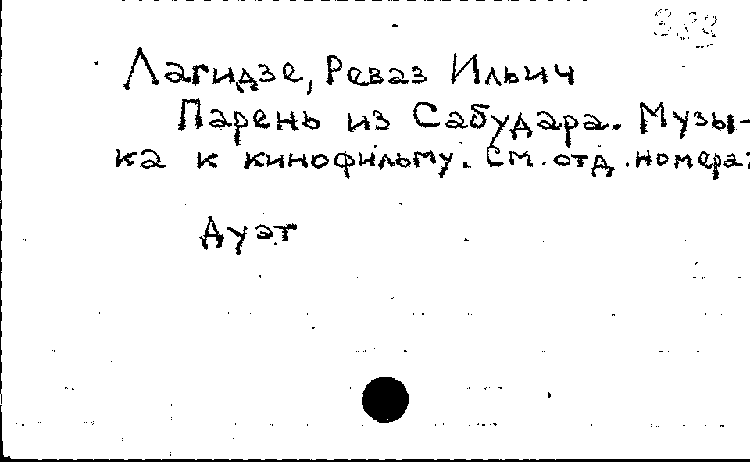 333
Лагидзе, Реваз Ильич
Парень из Сабудара. Музы-
ка к кинофильму. См. отд. номера:
Дуэт